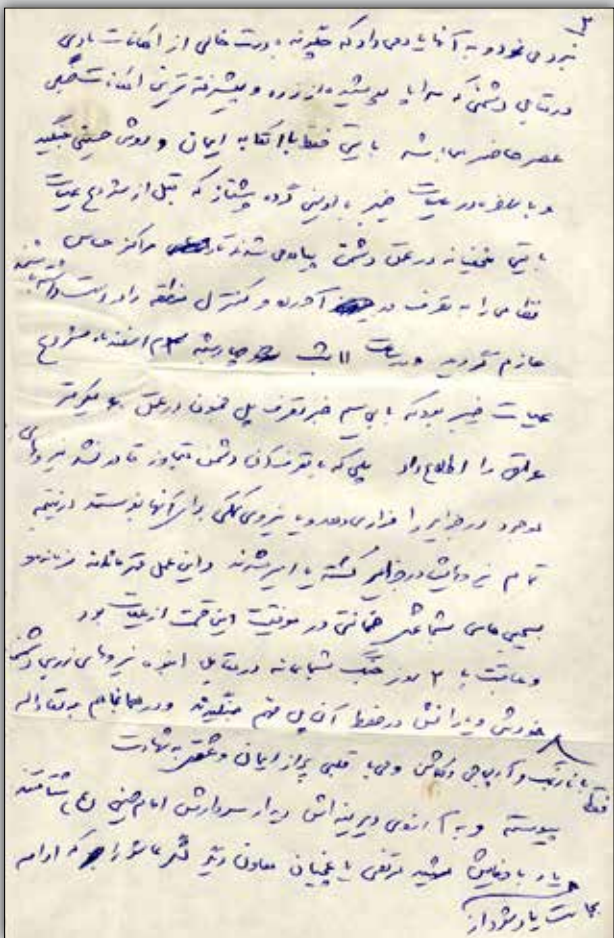 ۲
نیرو می نمود و به آنها یاد می داد که چگونه با دست خالی از امکانات مادی
در مقابل دشمنی که سراپا پوشیده از زره و پیشرفته ترین امکانات جنگی
عصر حاضر می باشد بایستی فقط با اتکا به ایمان و روش حسینی جنگید
و بالاخره در عملیات خیبر با اولین گروه پیشتاز که قبل از شروع عملیات
بایستی مخفیانه در عمق دشمن پیاده می شدند تا مراکز حساس
نظامی را به تصرف در آورده و کنترل منطقه را در دست داشته باشند
عازم گردید و در ساعت ۱۱ شب چهارشنبه ۳ اسفند ماه شروع
عملیات خیبر بود که با بی سیم خبر تصرف پل در عمق ۶۰ کیلومتر
عراق را اطلاع داد پلی که با تصرف آن دشمن متجاوز قادر نشد نیروهای
موجود در جزایر را فراری دهد و یا نیروی کمکی برای آنها بفرستد در نتیجه
تمام نیروهایش در جزایر کشته یا اسیر شدند و این عمل قهرمانانه فرمانده
بسیجی های شجاع ضمانتی در موفقیت این قسمت از عملیات بود
و عاقبت با ۲ روز جنگ شجاعانه در مقابل انبوه نیروهای زرهی دشمن
خودش و یارانش در حفظ آن پل مهم جنگیدند و در همانجا هم
فقط با نارنجک و آرپی جی و کلاش ولی با قلبی پر از ایمان و عشق به شهادت
پیوسته و به آرزوی دیرینه اش دیدار سردارش امام حسین (ع) شتافتند
یار باوفایش شهید مرتضی یاغچیان معاون دیگر لشگر عاشورا بود که ادامه